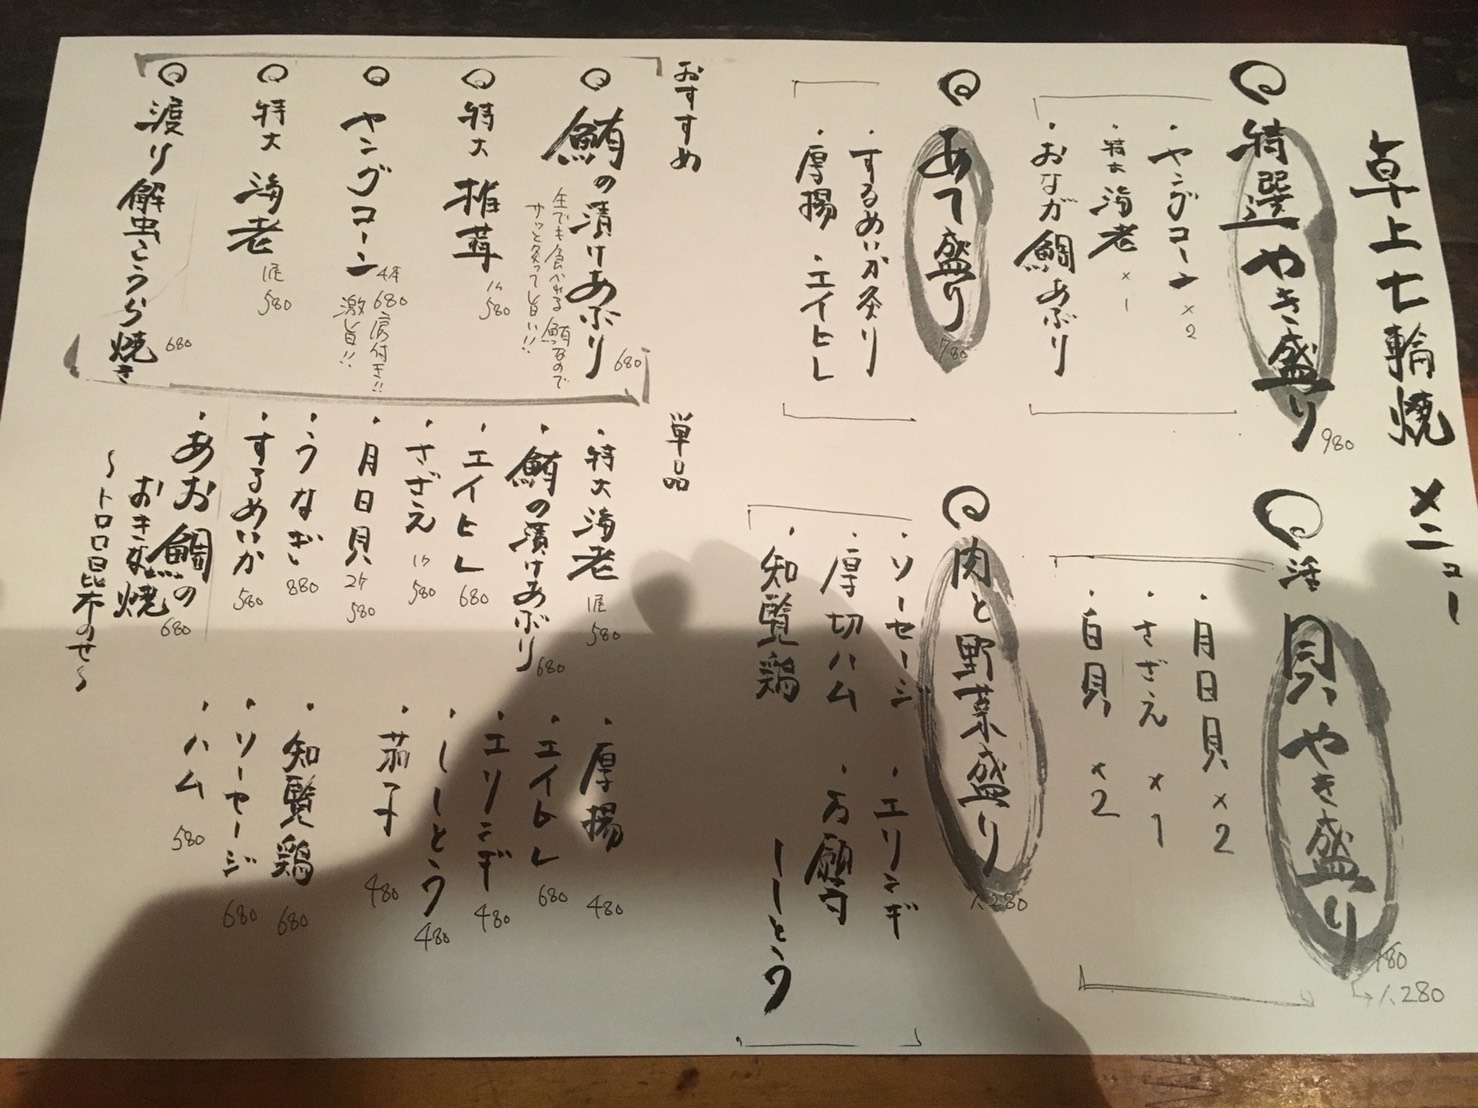 卓上七輪焼 メニュー
特選やき盛り 980
・ヤングコーン ×2
・特大海老 ×1
・おなが鯛あぶり
活 貝やき盛り
→1,280
・月日貝 ×2
・さざえ ×1
・白貝 ×2
あて盛り 780
・するめいか炙り
・厚揚 ・エイヒレ
肉と野菜盛り 1,280
・ソーセージ ・エリンギ
・厚切ハム
・知覧鶏 ししとう
おすすめ
鮪の漬けあぶり 680
生でも食べれる鮪なので
サッと炙って旨い!!
特大椎茸 1ケ 580
ヤングコーン 4本 680 房付き!!
激旨!!
特大海老 1尾 580
渡り蟹こうら焼き 680
単品
・特大海老 1尾 580
・鮪の漬けあぶり 680
・エイヒレ 680
・さざえ 1ケ 580
・月日貝 2ケ 580
・うなぎ 880
・するめいか 580
・あお鯛の
おきな焼 680
〜トロロ昆布のせ〜
・厚揚 480
・エイヒレ 680
・エリンギ 480
・ししとう 480
・茄子 480
・知覧鶏 680
・ソーセージ 680
・ハム 580